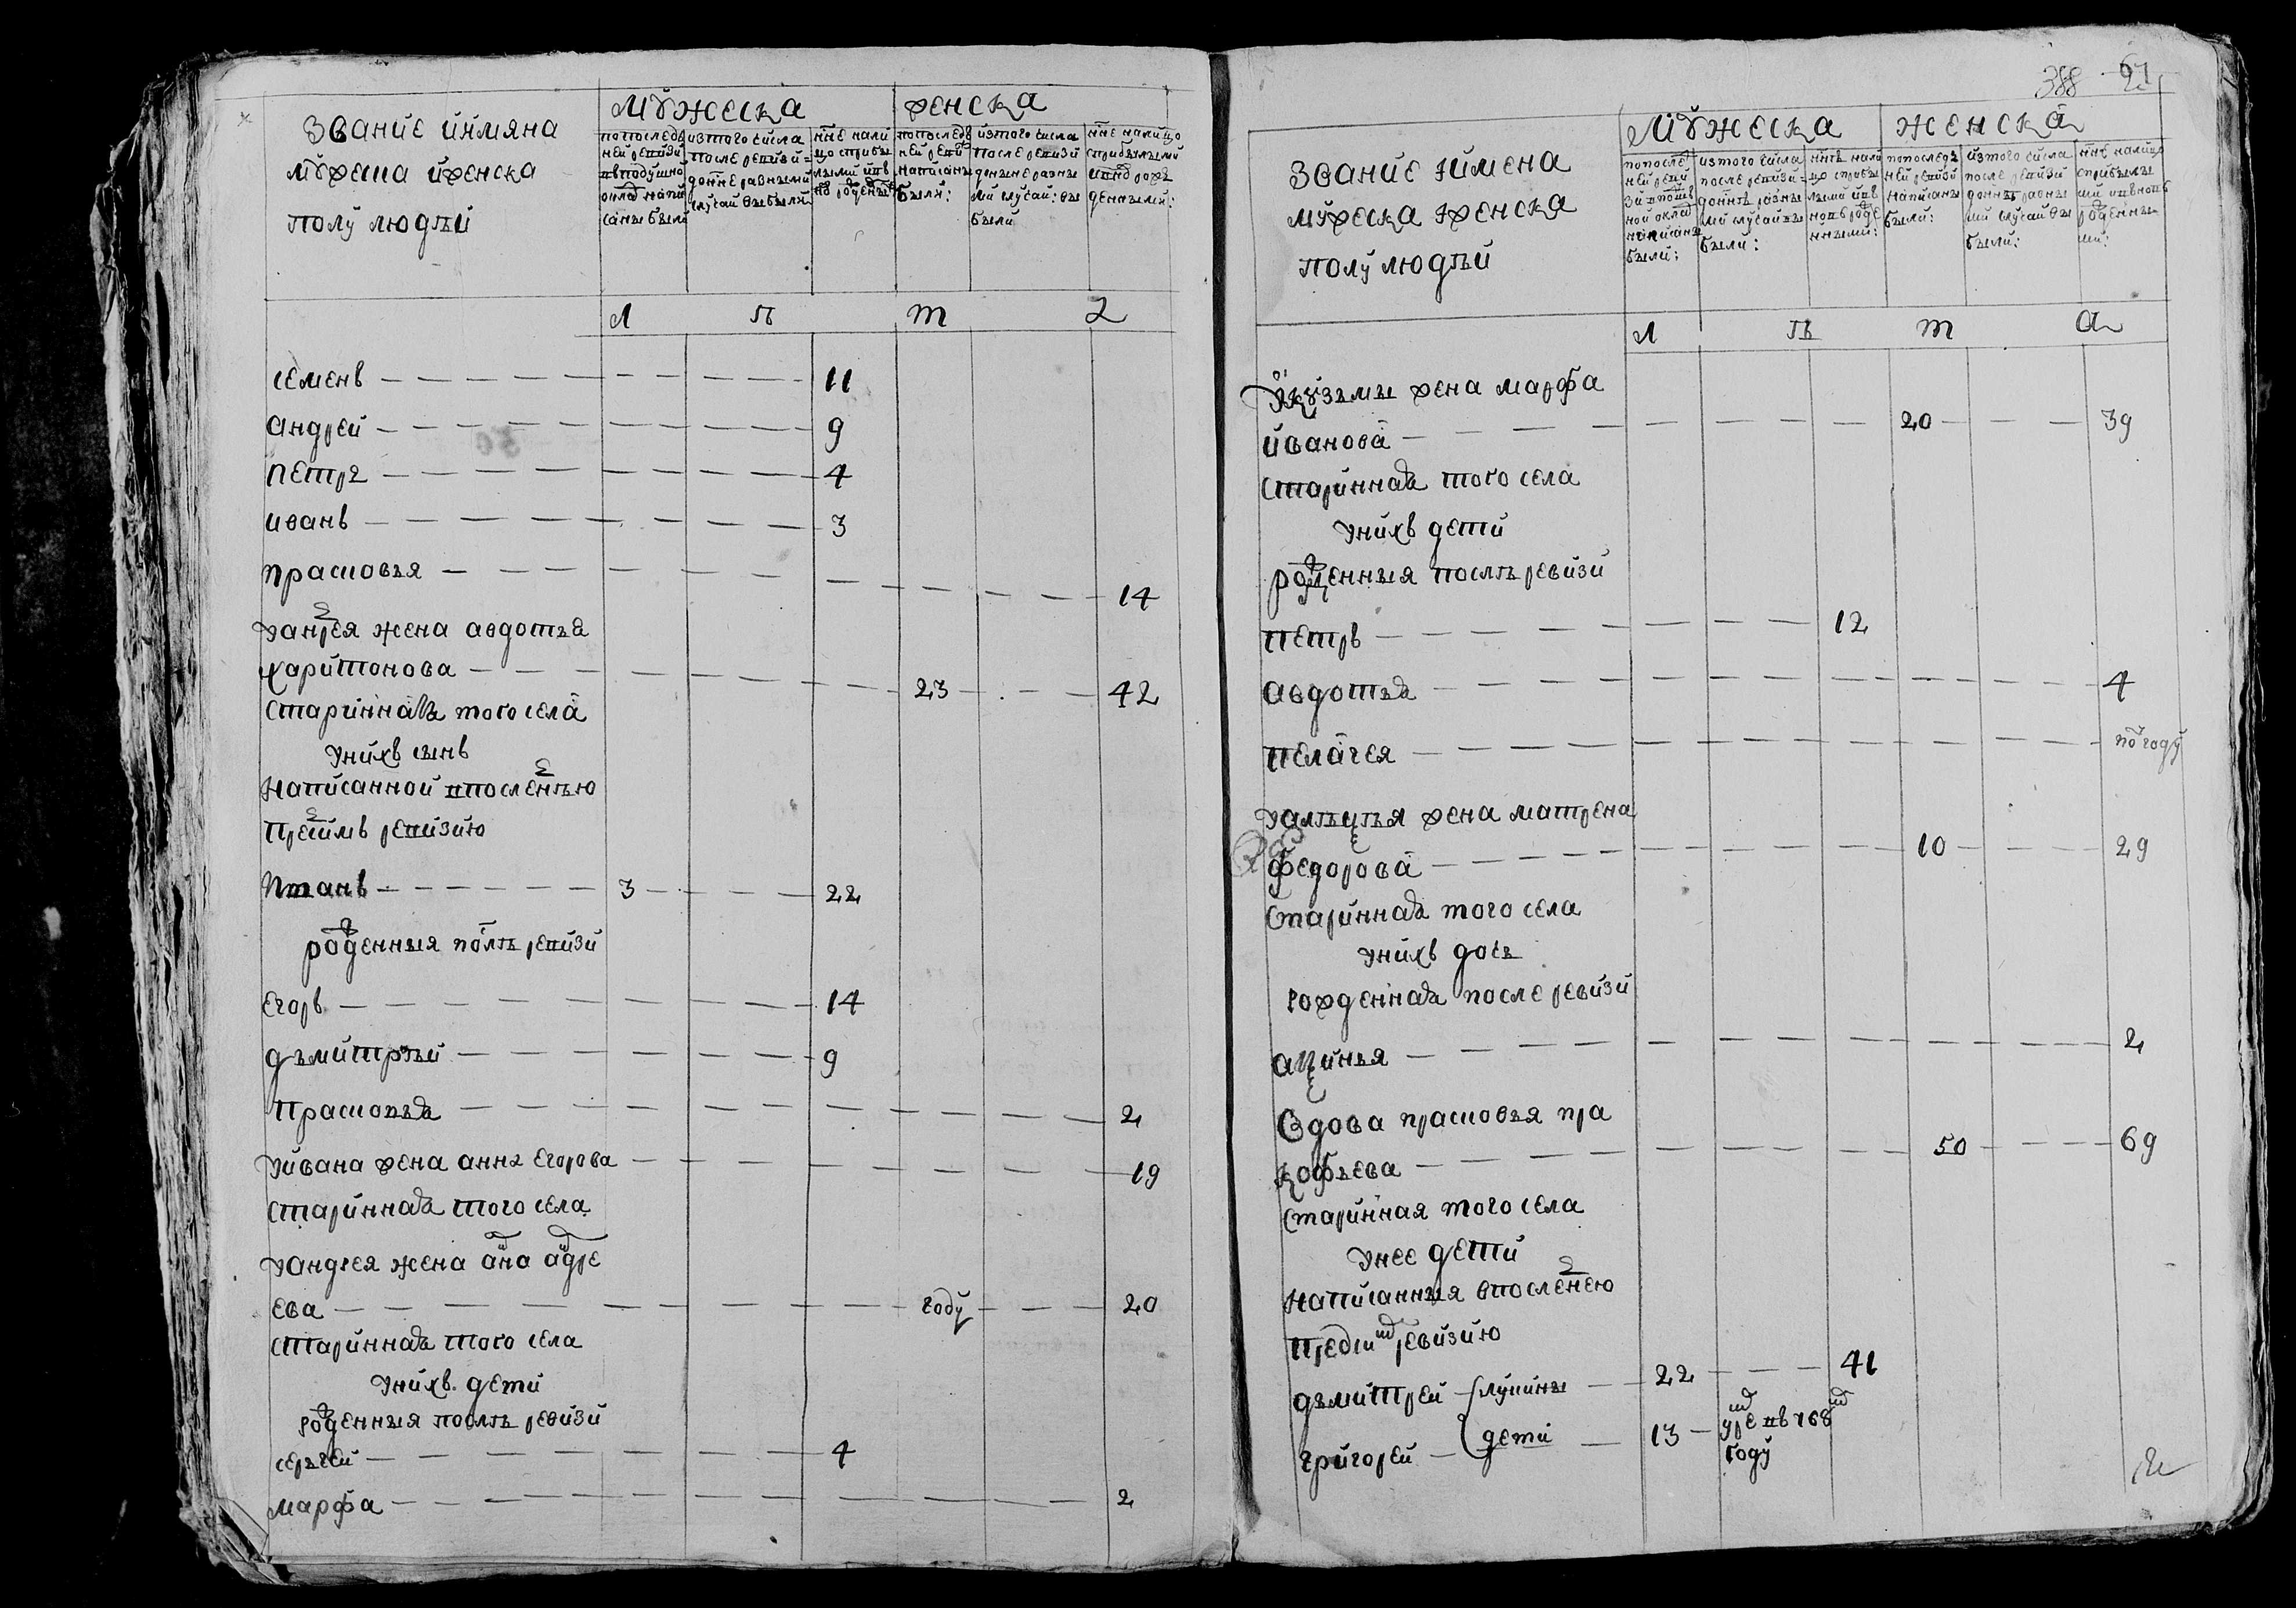 звание иимяна
мужеска иженска
полу людей
мужеска
женска
попоследъ
ней ревизи
вподушно
оклад напи
саны были
изтого числа
после ревизи
доныне разными
случаи выбыли
нне нали
цо сприбы
лыми ивъ
рожденны
попоследъ
ней реви
написаны
были:
изтого числа
после ревизи
доныне разны
ми случаи: вы
были
нне налицо
сприбылыми
рож
денными:
л п т л
семенъ 11
андрей 9
петръ 4
иванъ 3
прасковья 14
уандрея жена авдотья
харитонова 23 42
стариннаѧ того села
унихъ сынъ
написанной впоследнюю
ревизию
иванъ 3 22
рожденныя послѣ ревизи
егоръ 14
дъмитрѣй 9
прасковьѧ 2
уивана жена анна егорова 19
стариннаѧ того села
уандрея жена анна андре
ева году 20
стариннаѧ того села
унихъ дети
рожденныя послѣ ревизи
сергей 4
марфа 2
388
званiе иимена
мужеска иженска
полу людѣй
мужеска
женска
попосле
ней реви
зи
ной оклад
написаны
были:
изтого числа
после ревизи
донне разны
ми случаи вы
были:
нне нали
цо сприбы
лыми ивъ
новъ рожде
нными:
попоследъ
ней ревизи
написаны
были:
изтого числа
после ревизи
донне разны
ми случаи вы
были:
нне налицо
сприбылы
ми ивновъ
рожденны
ми:
л п т а
укузьмы жена марфа
иванова 20 39
стариннаѧ того села
унихъ дети
рожденныя послѣ ревизи
петръ 12
авдотьѧ 4
пелагея году
жена матрена
федорова 10 29
стариннаѧ того села
унихъ дочь
рожденнаѧ после ревизи
аксинья 2
вдова прасковья пра
кофьева 50 69
старинная того села
унее дети
написанныя впоследнею
пред сим ревизию
дъмитрей лукины 22 41
григорей дети 13 умре въ 768
году